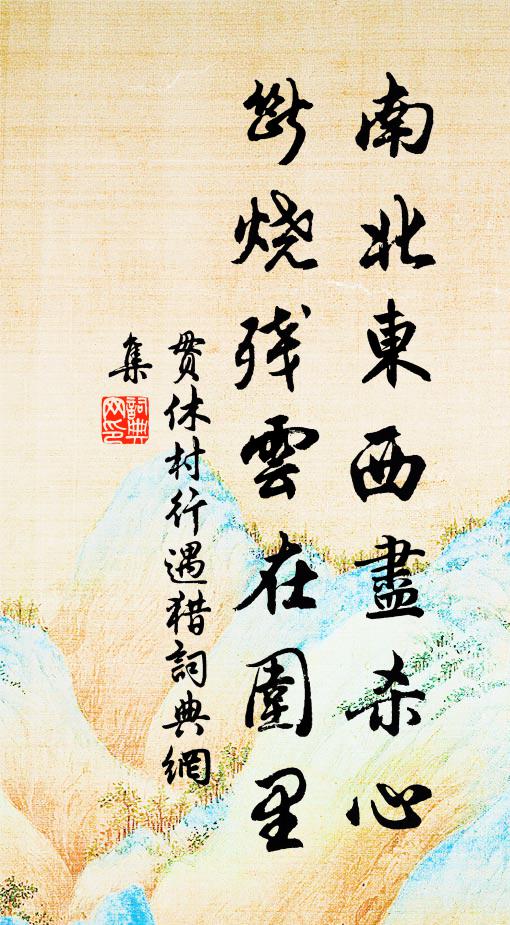 南北東西盡杀心
斷烧残雲在圍里
贯休村行遇猎詞典網
集
詞典网印